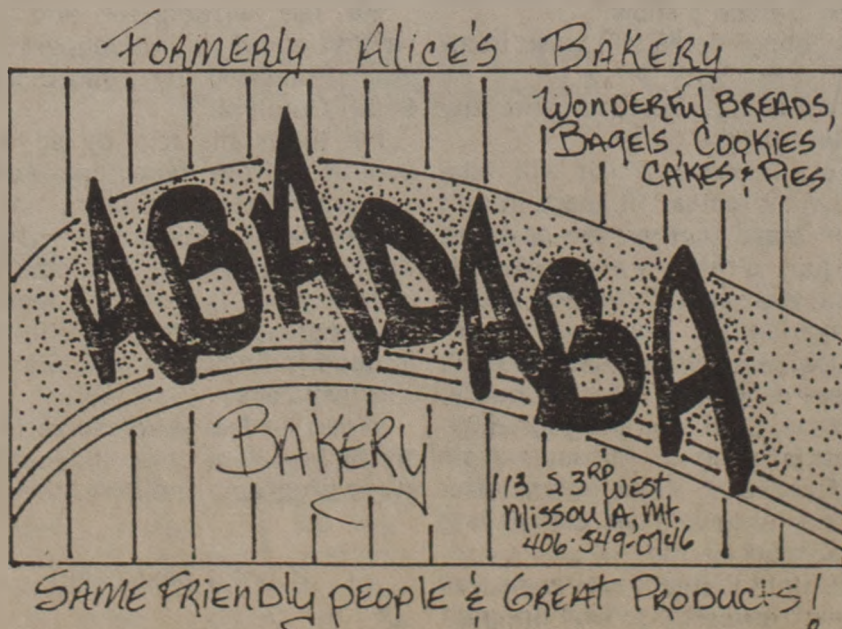 Formerly Alice's Bakery
Wonderful Breads,
Bagels, Cookies
Cakes & Pies
ABADABA
Bakery
113 S 3RD West
Missoula, Mt.
406-549-0746
Same Friendly people & Great Products!